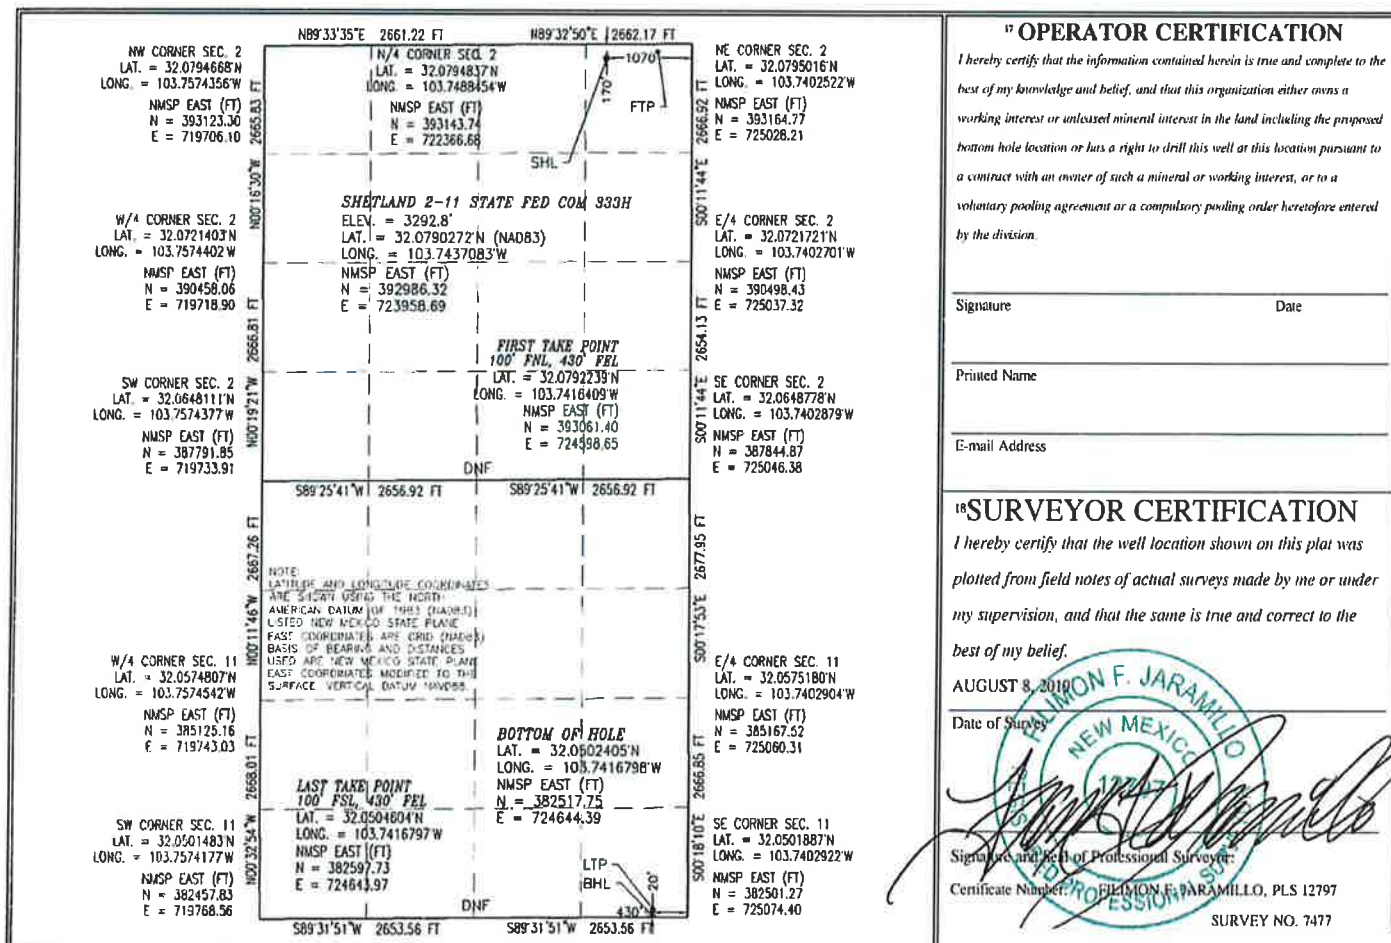 N89°33'35"E 2661.22 FT
N89°32'50"E 2662.17 FT
NW CORNER SEC. 2
LAT. = 32.0794668'N
LONG. = 103.7574356'W
NMSP EAST (FT)
N = 393123.30
E = 719706.10
N/4 CORNER SEC. 2
LAT. = 32.0794837'N
LONG. = 103.7488454'W
NMSP EAST (FT)
N = 393143.74
E = 722366.68
1070'
170'
FTP
SHL
NE CORNER SEC. 2
LAT. = 32.0795016'N
LONG. = 103.7402522'W
NMSP EAST (FT)
N = 393164.77
E = 725028.21
N00°16'30"W 2665.83 FT
S00°11'44"E 2666.92 FT
SHETLAND 2-11 STATE FED COM 333H
ELEV. = 3292.8'
LAT. = 32.0790272'N (NAD83)
LONG. = 103.7437083'W
NMSP EAST (FT)
N = 392986.32
E = 723958.69
W/4 CORNER SEC. 2
LAT. = 32.0721403'N
LONG. = 103.7574402'W
NMSP EAST (FT)
N = 390458.06
E = 719718.90
E/4 CORNER SEC. 2
LAT. = 32.0721721'N
LONG. = 103.7402701'W
NMSP EAST (FT)
N = 390498.43
E = 725037.32
N00°19'21"W 2666.81 FT
S00°11'44"E 2654.13 FT
FIRST TAKE POINT
100' FNL, 430' FEL
LAT. = 32.0792239'N
LONG. = 103.7416409'W
NMSP EAST (FT)
N = 393061.40
E = 724598.65
SW CORNER SEC. 2
LAT. = 32.0648111'N
LONG. = 103.7574377'W
NMSP EAST (FT)
N = 387791.85
E = 719733.91
SE CORNER SEC. 2
LAT. = 32.0648778'N
LONG. = 103.7402879'W
NMSP EAST (FT)
N = 387844.87
E = 725046.38
DNF
S89°25'41"W 2656.92 FT
S89°25'41"W 2656.92 FT
N00°11'46"W 2667.26 FT
S00°17'53"E 2677.95 FT
NOTE:
LATITUDE AND LONGITUDE COORDINATES
ARE SHOWN USING THE NORTH
AMERICAN DATUM OF 1983 (NAD83)
LISTED NEW MEXICO STATE PLANE
EAST COORDINATES ARE GRID (NAD83)
BASIS OF BEARING AND DISTANCES
USED ARE NEW MEXICO STATE PLANE
EAST COORDINATES MODIFIED TO THE
SURFACE VERTICAL DATUM NAVD88.
W/4 CORNER SEC. 11
LAT. = 32.0574807'N
LONG. = 103.7574542'W
NMSP EAST (FT)
N = 385125.16
E = 719743.03
E/4 CORNER SEC. 11
LAT. = 32.0575180'N
LONG. = 103.7402904'W
NMSP EAST (FT)
N = 385167.52
E = 725060.31
N00°32'54"W 2668.01 FT
S00°18'10"E 2666.85 FT
BOTTOM OF HOLE
LAT. = 32.0502405'N
LONG. = 103.7416798'W
NMSP EAST (FT)
N = 382517.75
E = 724644.39
LAST TAKE POINT
100' FSL, 430' FEL
LAT. = 32.0504604'N
LONG. = 103.7416797'W
NMSP EAST (FT)
N = 382597.73
E = 724643.97
SW CORNER SEC. 11
LAT. = 32.0501483'N
LONG. = 103.7574177'W
NMSP EAST (FT)
N = 382457.83
E = 719768.56
LTP
BHL
20'
430'
SE CORNER SEC. 11
LAT. = 32.0501887'N
LONG. = 103.7402922'W
NMSP EAST (FT)
N = 382501.27
E = 725074.40
DNF
S89°31'51"W 2653.56 FT
S89°31'51"W 2653.56 FT
17 OPERATOR CERTIFICATION
I hereby certify that the information contained herein is true and complete to the
best of my knowledge and belief, and that this organization either owns a
working interest or unleased mineral interest in the land including the proposed
bottom hole location or has a right to drill this well at this location pursuant to
a contract with an owner of such a mineral or working interest, or to a
voluntary pooling agreement or a compulsory pooling order heretofore entered
by the division.
Signature Date
Printed Name
E-mail Address
18 SURVEYOR CERTIFICATION
I hereby certify that the well location shown on this plat was
plotted from field notes of actual surveys made by me or under
my supervision, and that the same is true and correct to the
best of my belief.
AUGUST 8, 2019
Date of Survey
FILIMON F. JARAMILLO
NEW MEXICO
Signature and Seal of Professional Surveyor:
Certificate Number: FILIMON F. JARAMILLO, PLS 12797
SURVEY NO. 7477